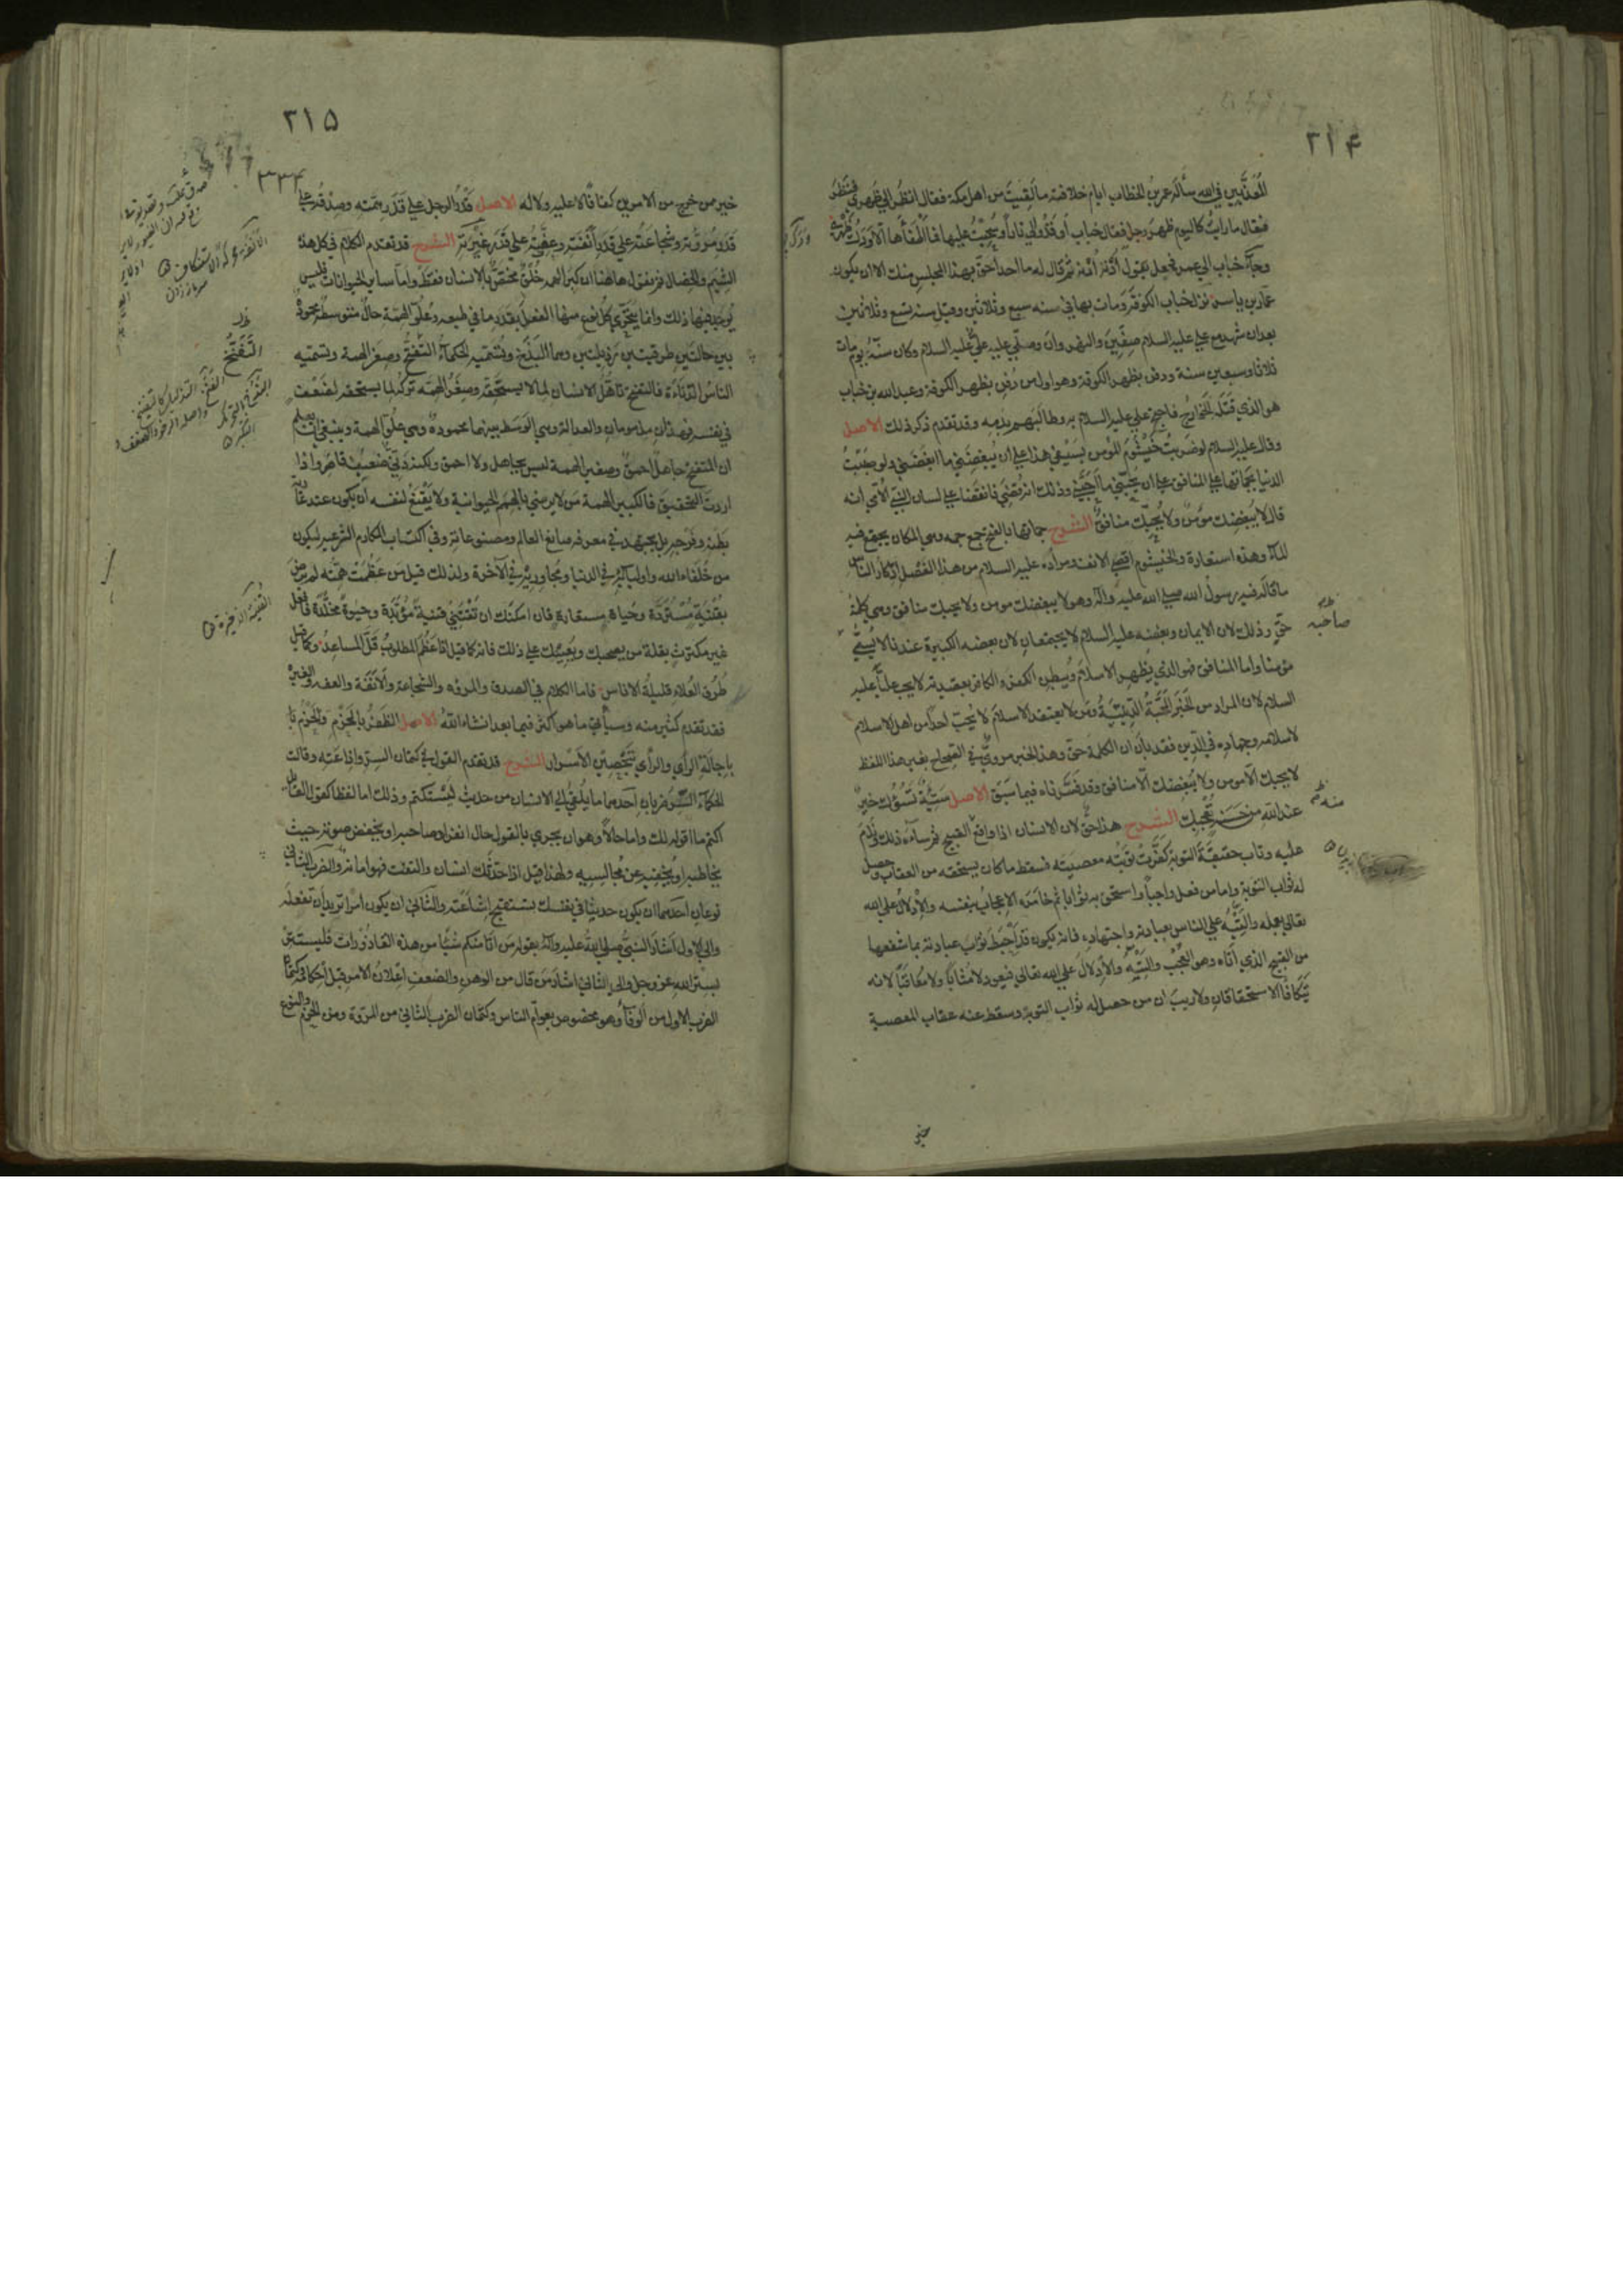 ٢١۴
المعذبين في الله سأله عمر بن الخطاب ايام خلافته ما لقيت من اهل مكة فقال انظر الي ظهري فنظر
فقال ما رايت كاليوم ظهر رجل فقال خباب أوقدوا لي نارا وسحبت عليها فما اطفأها الا ودك ظهري
وجاء خباب الي عمر فجعل يقول ادنه ادنه ثم قال له ما احد احق بهذا المجلس منك الا ان يكون
عمار بن ياسر نزل خباب الكوفة ومات بها في سنه سبع وثلاثين وقيل سنه تسع وثلاثين
بعد ان شهد مع علي عليه السلام صفين والنهروان وصلي عليه علي عليه السلام وكان سنه يوم مات
ثلاثا وسبعين سنة ودفن بظهر الكوفة وهو اول من دفن بظهر الكوفة وعبد الله بن خباب
هو الذي قتله الخوارج فاحتج علي عليه السلام به وطالبهم بدمه وقد تقدم ذكر ذلك الاصل
وقال عليه السلام لو ضربت خيشوم المومن بسيفي هذا علي ان يبغضني ما ابغضني ولو صببت
الدنيا بجماتها علي المنافق علي ان يحبني ما احبني وذلك انه قضي فانقضا علي لسان النبي الامي انه
قال لا يبغضك مومن ولا يحبك منافق الشرح جماتها بالفتح جمع جمه وهي المكان يجتمع فيه
الماء وهذه استعارة والخيشوم اقصي الانف ومراده عليه السلام من هذا الفصل اذكار الناس
ما قاله فيه رسول الله صلي الله عليه وآله وهو لا يبغضك مومن ولا يحبك منافق وهي كلمة
حق وذلك لان الايمان وبغضه عليه السلام لا يجتمعان لان بغضه الكبيرة عندنا لا يسمي
مومنا واما المنافق فهو الذي يظهر الاسلام ويبطن الكفر والكافر بعقيدته لا يحب عليا عليه
السلام لان المراد من الخبر المحبة الدينية ومن لا يعتقد الاسلام لا يحب احدا من اهل الاسلام
لاسلامه وجهاده في الدين فقد بان ان الكلمة حق وهذا الخبر مروي في الصحاح بغير هذا اللفظ
لا يحبك الا مومن ولا يبغضك الا منافق وقد فسرناه فيما سبق الاصل سيئة تسوك خير
عند الله من حسنة تعجبك الشرح هذا حق لان الانسان اذا واقع القبيح ثم ساءه ذلك وندم
عليه وتاب حقيقة التوبة كفرت توبته معصيته فسقط ما كان يستحقه من العقاب وحصل
له ثواب التوبة واما من فعل واجبا واستحق به ثوابا ثم خامره الاعجاب بنفسه والادلال علي الله
تعالي بعلمه والتيه علي الناس بعبادته واجتهاده فانه يكون قد احبط ثواب عبادته بما شفعها
من القبيح الذي اتاه وهو العجب والتيه والادلال علي الله تعالي فيعود لا مثابا ولا معاقبا لانه
يتكافأ الاستحقاقان ولا ريب ان من حصل له ثواب التوبة وسقط عنه عقاب المعصية
صاحبه
منه
خير
٢١۵
٣٣۴
خير ممن خرج من الامرين كفافا لا عليه ولا له الاصل قدر الرجل علي قدر همته وصدقه علي
قدر مروته وشجاعته علي قدر أنفته وعفته علي قدر غيرته الشرح قد تقدم الكلام في كل هذه
الشيم والخصال ثم نقول هاهنا ان كبر الهمه خلق مختص بالانسان فقط واما ساير الحيوانات فليس
يوجد فيها ذلك وانما يتجري كل نوع منها الفعل بقدر ما في طبعه وعلو الهمة حال متوسطة محمودة
بين حالتين طرفيتين رذيلتين وهما البذخ وتسميه الحكماء التفتح وصغر الهمة وتسميه
الناس الدناءة فالتفتح تاهل الانسان لما لا يستحقه وصغر الهمه تركه لما يستحقه لضعف
في نفسه فهذان مذمومان والعدالة وهي الوسط بينهما محمودة وهي علو الهمة وينبغي ان يعلم
ان المتفتح جاهل احمق وصغير الهمة ليس بجاهل ولا احمق ولكنه دني ضعيف قاصر واذا
اردت التحقيق فالكبير الهمة من لا يرضي بالهمم الحيوانية ولا يقنع لنفسه ان يكون عند غاية
بطنه وفرجه بل يجتهد في معرفه صانع العالم ومصنوعاته وفي اكتساب المكارم الشرعيه ليكون
من خلفاء الله واوليائه في الدنيا ومجاوريه في الآخرة ولذلك قيل من عظمت همته لم يرض
بقنية مستردة وحياة مستعارة فان امكنك ان تقتني قنية مؤبدة وحيوة مخلدة فافعل
غير مكترث بقلة من يصحبك ويعينك علي ذلك فانه كما قيل اذا عظم المطلوب قل المساعد وكما قيل
طرق العلاء قليلة الاناس فاما الكلام في الصدق والمروه والشجاعة والانفة والعفه والغيرة
فقد تقدم كثير منه وسيأتي ما هو اكثر فيما بعد انشاء الله الاصل الظفر بالحزم والحزم با
باجالة الراي والراي بتحصين الاسرار الشرح قد تقدم القول في كتمان السر واذاعته وقالت
الحكماء السر ضربان احدهما ما يلقي الي الانسان من حديث ليستكتم وذلك اما لفظا كقول القائل
اكتم ما اقوله لك واما حالا وهو ان يجري بالقول حال انفراد صاحبه او يخفض صوته حيث
يخاطبه او يخفيه عن مجالسيه ولهذا قيل اذا حدثك انسان والتفت فهو امانة والضرب الثاني
نوعان احدهما ان يكون حديثا في نفسك تستقبح اشاعته والثاني ان يكون امرا تريد أن تفعله
والي الاول اشار النبي صلي الله عليه وآله بقوله من اتي منكم شيئا من هذه القاذورات فليستتر
بستر الله عز وجل والي الثاني اشار من قال من الوهن والضعف اعلان الامر قبل احكامه فكتمان
الضرب الاول من الوفاء وهو مخصوص بعوام الناس وكتمان الضرب الثاني من المروة ومن الحزم والنوع
التفتح
القنية الذخيرة